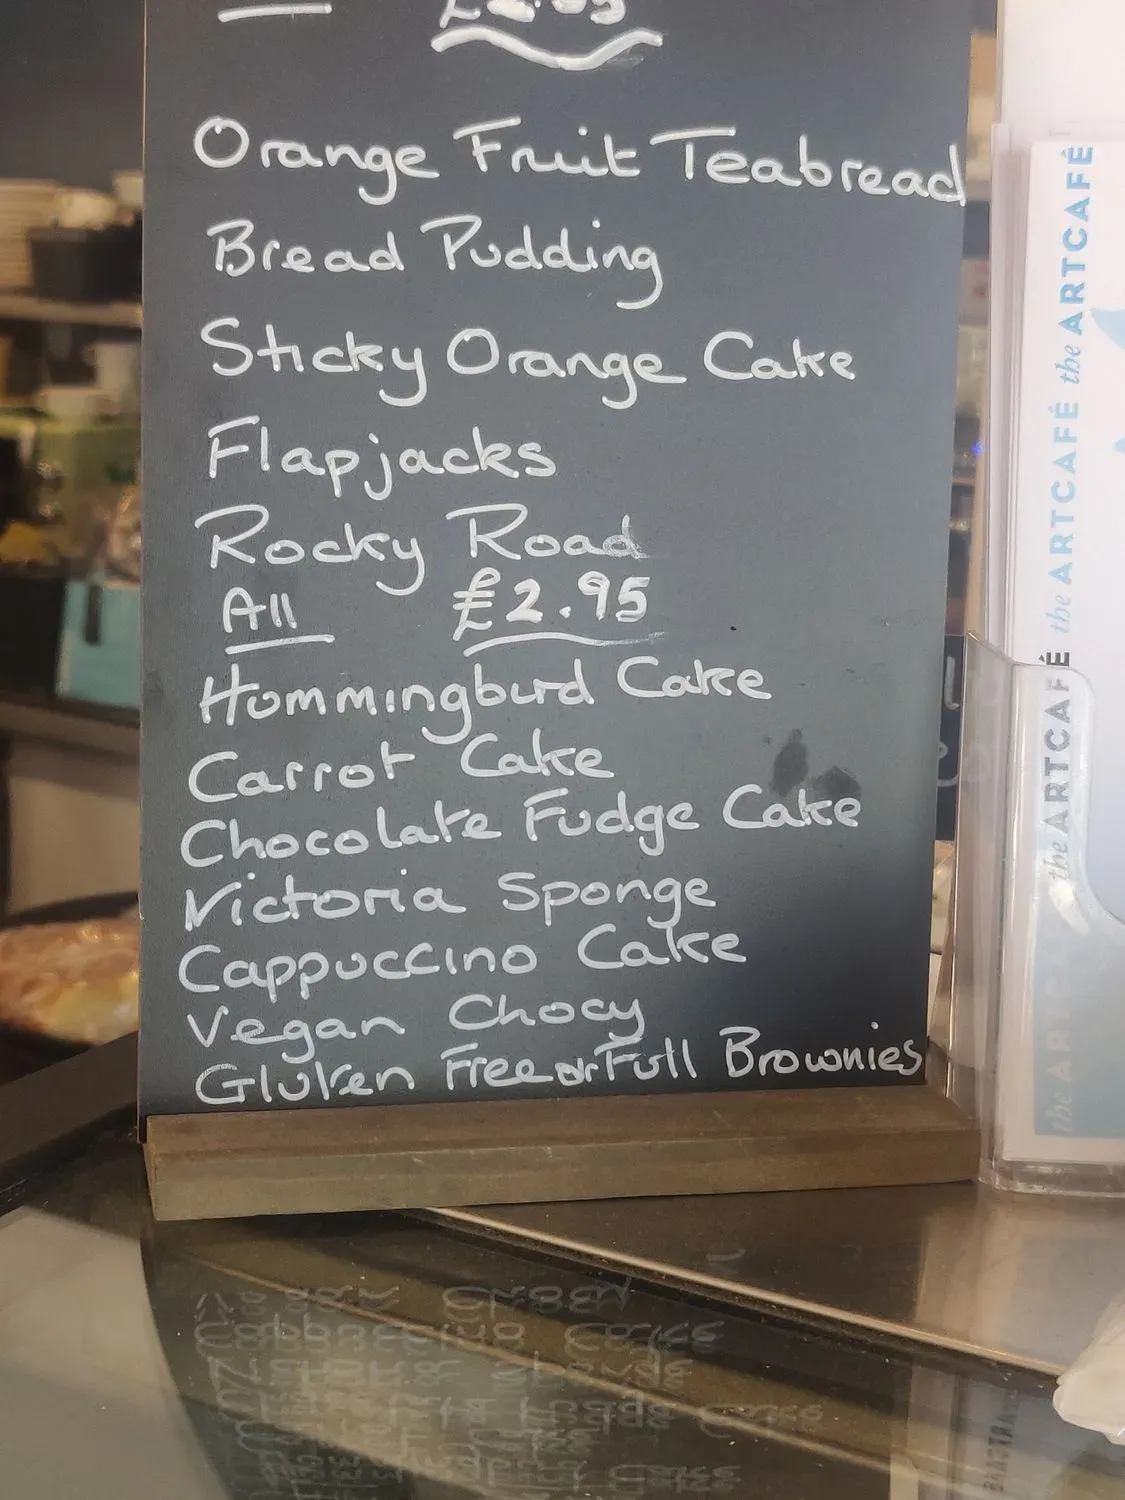 Orange Fruit Teabread
Bread Pudding
Sticky Orange Cake
Flapjacks
Rocky Road
All £2.95
Hummingburd Cake
Carrot Cake
Chocolate Fudge Cake
Victoria Sponge
Cappuccino Cake
Vegan Chocy
Gluten Free or Full Brownies
the ARTCAFÉ the ARTCAFÉ the ARTCAFÉ the ARTCAFÉ